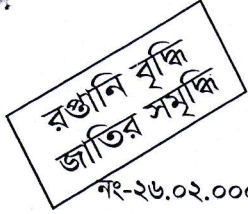 রপ্তানি বৃদ্ধি
জাতির সমৃদ্ধি
নং-২৬.০২.০০০